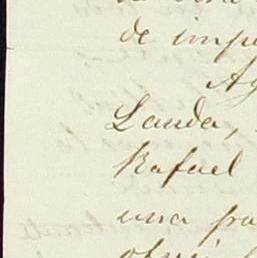 de impu
Ag
Landa,
Rafael
una fra